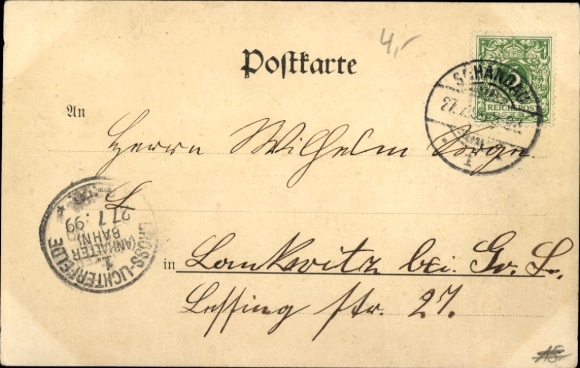 4,-
Postkarte
SCHANDAU
REICHSPOST
An
Herrn Wilhelm
L
in Lankwitz bei Gr. L.
Lessing str. 27.
GROSS-LICHTERFELDE
(ANHALTER
BAHN)
1.
27.7.99